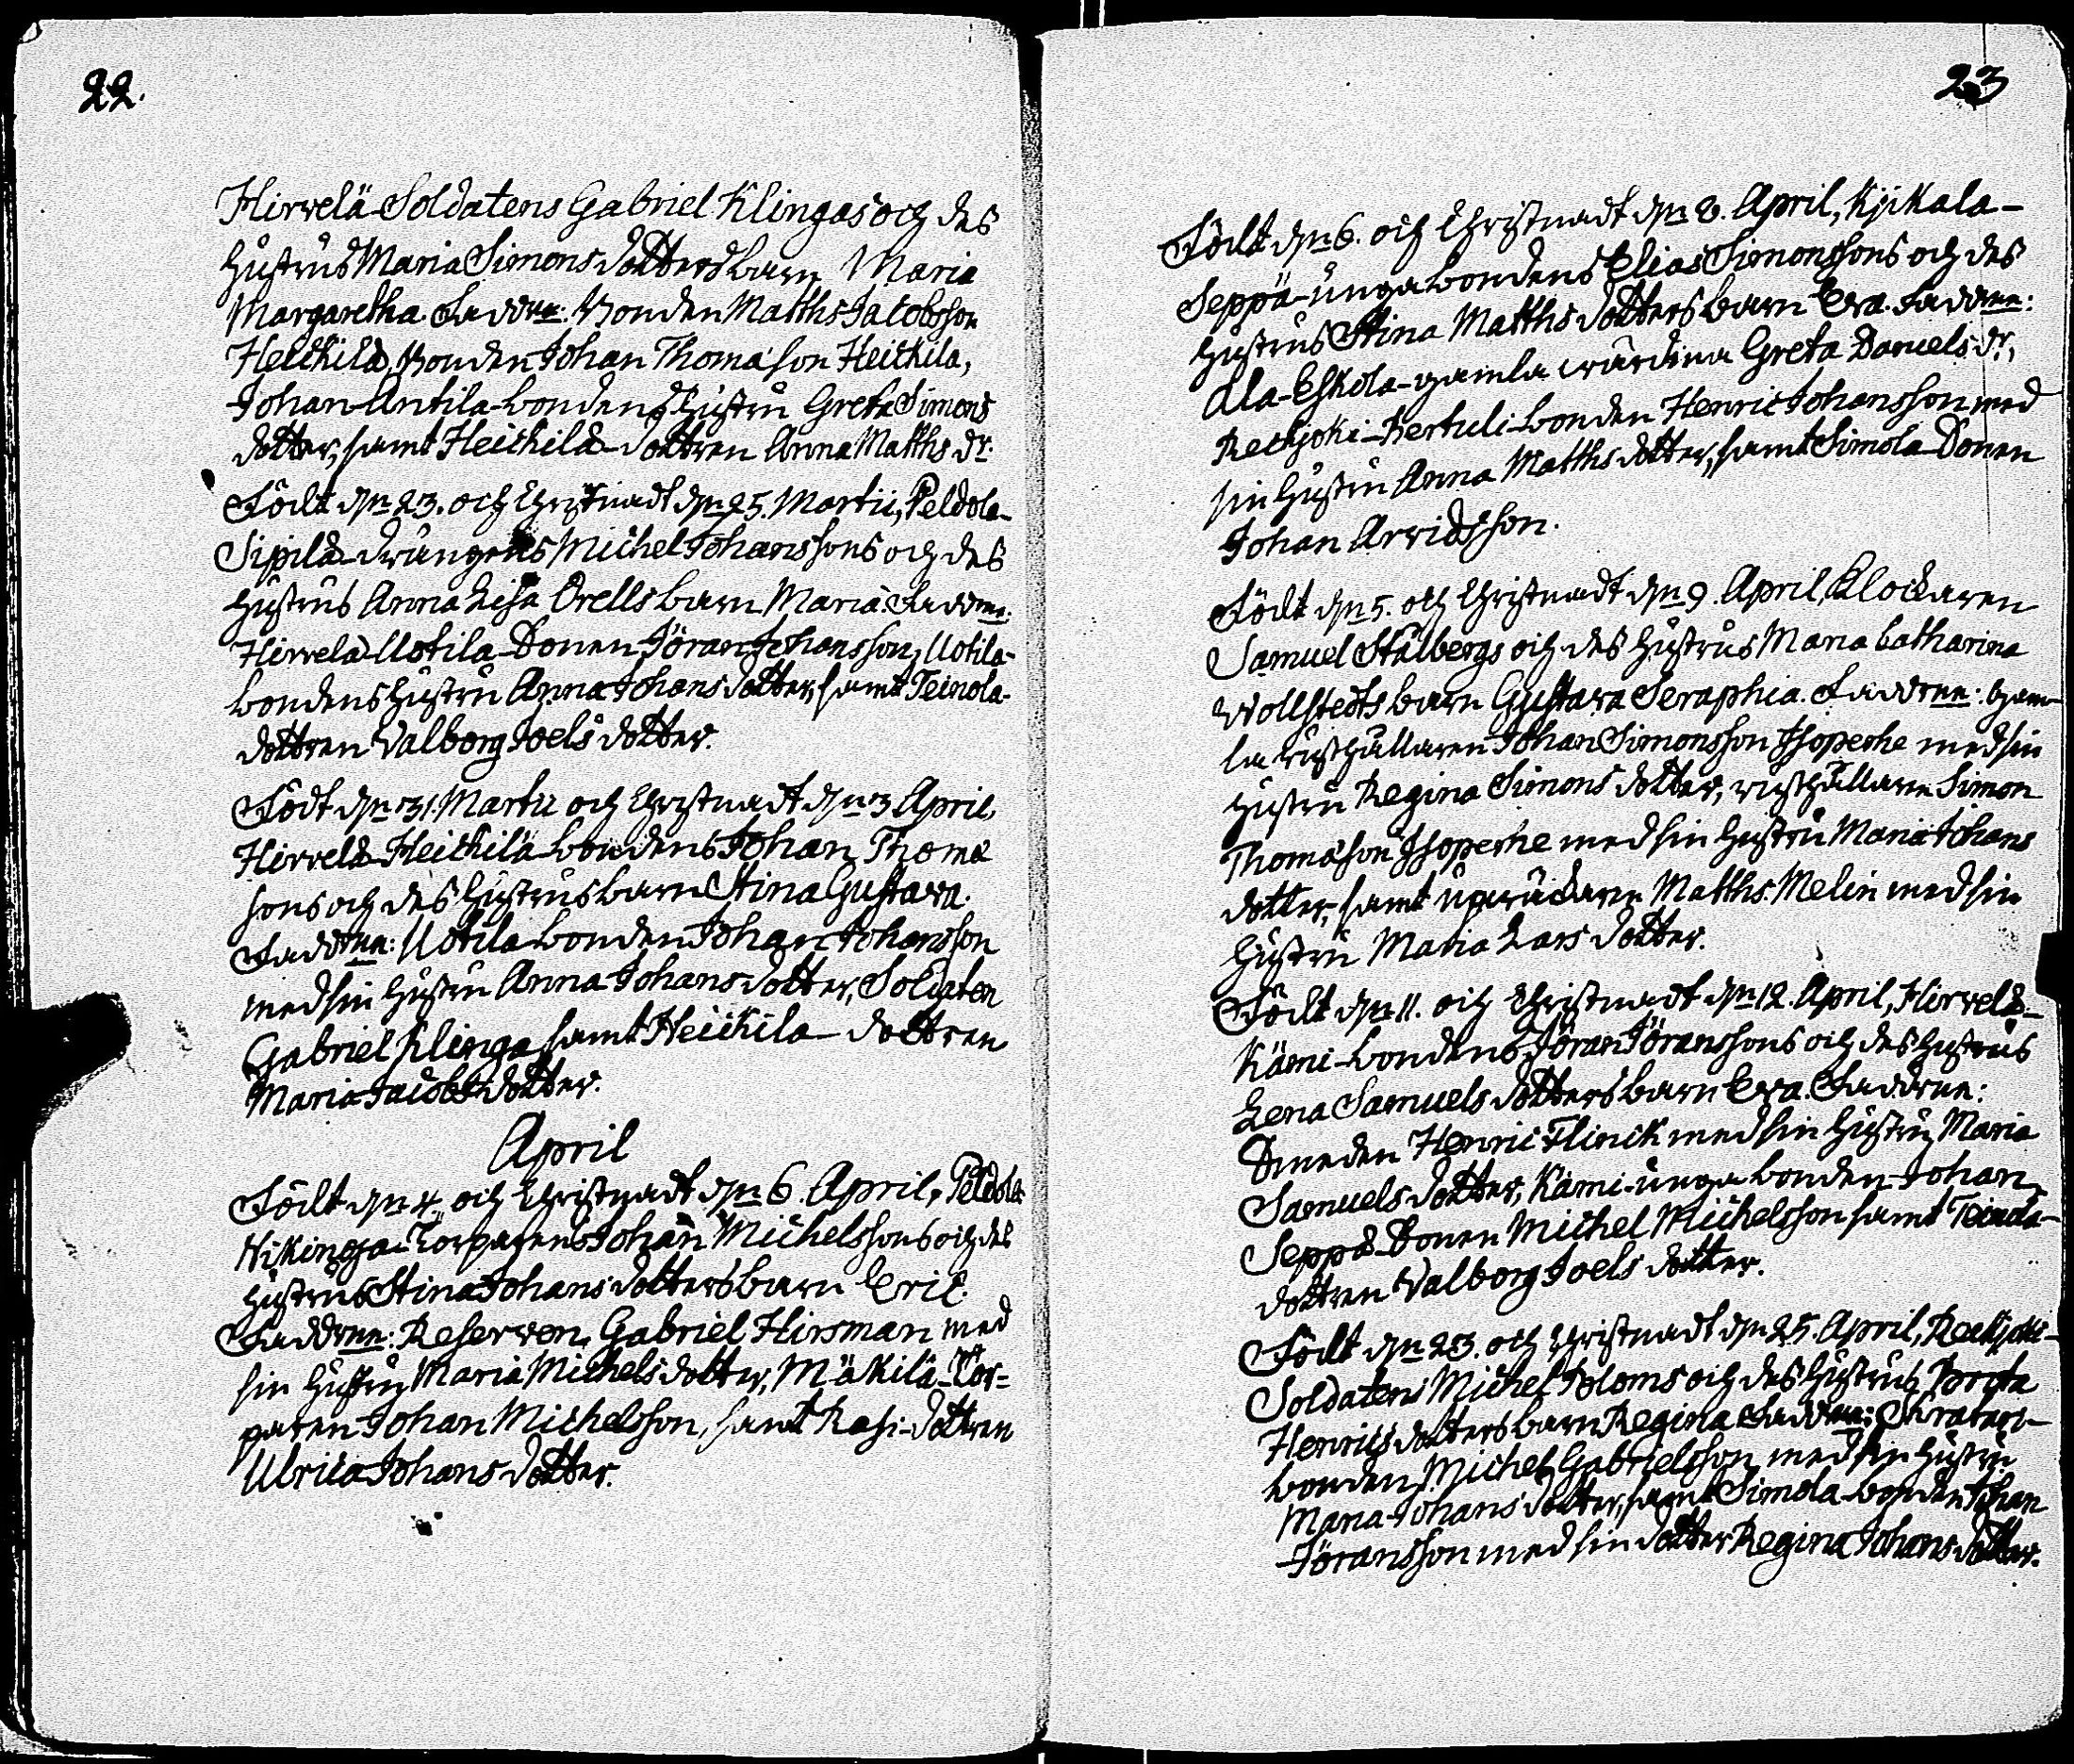 22.
Hirvelä Soldatens Gabriel Klingas och des
hustrus Maria Simons dotters barn Maria
Margaretha. Faddrar: Bonden Matths Jacobsson
Heickilä, Bonden Johan Thomason Heickila,
Johan Antila-bondens hustru Greta Simons
dotter, samt Heickilä-dottren Anna Matths dr.
Födt dn 23. och Christnadt dn 25. Martii, Peldola-
Sipilä-drängens Michel Johanssons och des
hustrus Anna Lisa Orells barn Maria. Faddrar:
Hirvelä Uotila-Sonen Jöran Johansson, Uotila-
bondens hustru Anna Johans dotter, samt Teinola-
dottren Valborg Joels dotter.
Födt dn 31. Martii och Christnadt dn 3 April,
Hirvelä-Heickilä-bondens Johan Thoma
sons och des hustrus barn Stina Gustava.
Faddrar: Uotila-bonden Johan Johansson
med sin hustru Anna Johans dotter, Soldaten
Gabriel Klinga samt Heickila-dottren
Maria Jacobs dotter.
April
Födt dn 4. och Christnadt dn 6. April, Peldola-
Nikinoja-Torparens Johan Michelssons och des
hustrus Stina Johans dotters barn Eric.
Faddrar: Reserven, Gabriel Hirsman med
sin hustru Maria Michels dotter, Mäkilä-Tor=
paren Johan Michelsson, samt Kasi-dottren
Ulrica Johans dotter.
23
Födt dn 6. och Christnadt dn 8. April, Kjikala-
Seppä-unga bondens Elias Simonssons och des
hustrus Stina Matths dotters barn Eva. Faddrar:
Ala-Eskola-gamla wärdina Greta Daniels dr,
Reckjoki-Pertuli-bonden Henric Johansson med
sin hustru Anna Matths dotter, samt Simola Sonen
Johan Arvidsson.
Födt dn 5. och Christnadt dn 9. April, Klockaren
Samuel Stålbergs och des hustrus Maria Catharina
Wollstedts barn Gustava Seraphia. Faddrar: gam-
la rusthållaren Johan Simonsson Isoperhe med sin
hustru Regina Simons dotter, rusthållaren Simon
Thomason Isoperhe med sin hustru Maria Johans
dotter, samt Matths. Melin med sin
hustru Maria Lars dotter.
Födt dn 11. och Christnadt dn 12. April, Hirvelä-
Kämi-bondens Jöran Jöranssons och des hustrus
Lena Samuels dotters barn Eva. Faddrar:
Smeden Henric Flinck med sin hustru Maria
Samuels dotter, Kämi-unga bonden Johan,
Seppä-Sonen Michel Michelsson samt Teinola-
dottren Valborg Joels dotter.
Födt dn 23. och Christnadt dn 25. April, Reckjoki-
Soldatens Michel Bloms och des hustrus Brita
Henrics dotters barn Regina Faddrar:
bonden Michel Gabrielsson med sin hustru
Maria Johans dotter, samt Simola-bonden Johan
Jöransson med sin dotter Regina Johans dotter.